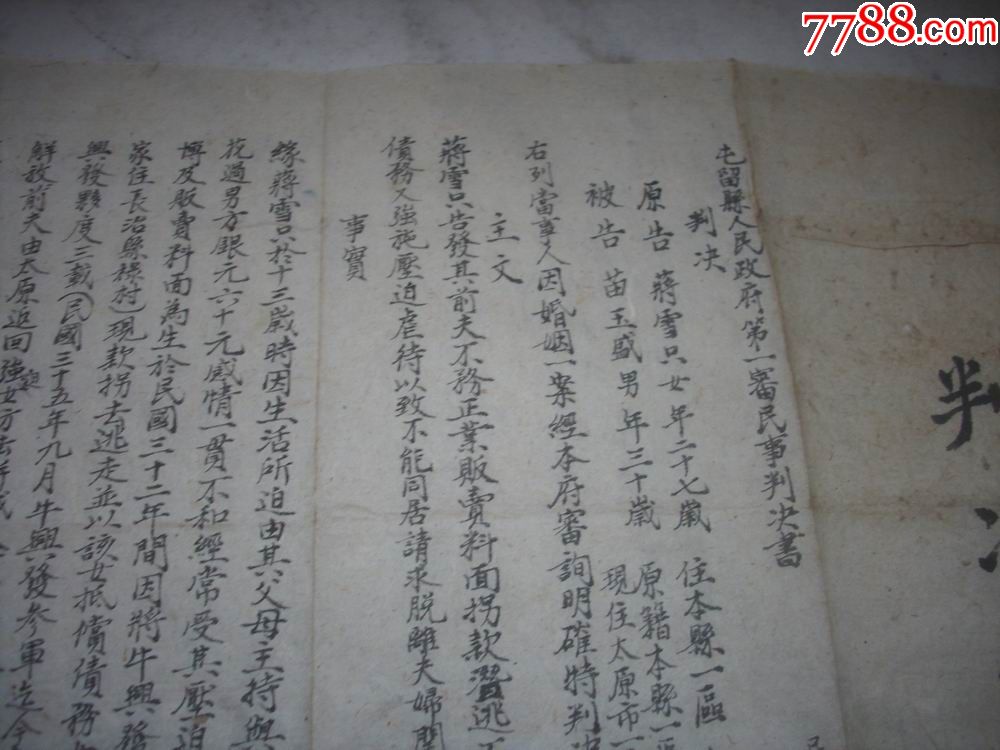 7788.com
判
屯留縣人民政府第一審民事判决書
判决
原告 蔣雪只女年二十七歲 住本縣一區
被告 苗玉盛男年三十歲 原籍本縣一區
現住太原市一
右列當事人因婚姻一案經本府審詢明確特判决
主文
蔣雪只告發其前夫不務正業販賣料面拐款潛逃
債務又強施壓迫虐待以致不能同居請求脱離夫婦關
事實
緣蔣雪只於十三歲時因生活所迫由其父母主持與
花過男方銀元六十元感情一貫不和經常受其壓迫
博及販賣料面為生於民國三十二年間因將牛興發
家住長治縣祿村)現款拐去逃走並以該女抵償債務
興發夥度三載(民國三十五年九月牛興發參軍迄今
解放前夫由太原返回強迫女方去